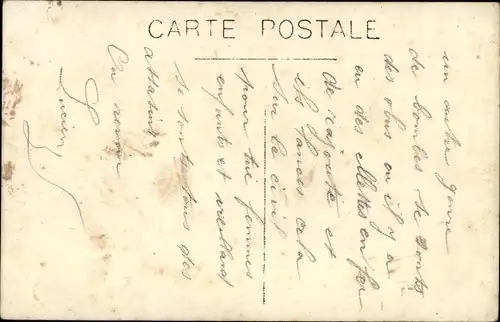 CARTE POSTALE
un autre genre
de bombes se sont
des obus ou il y a
eu des
de rajouté et
ils lances cela
sur le civil
pour tue femmes
enfants et vieillard
se sont tous des
assasins
Au revoir
Lucien